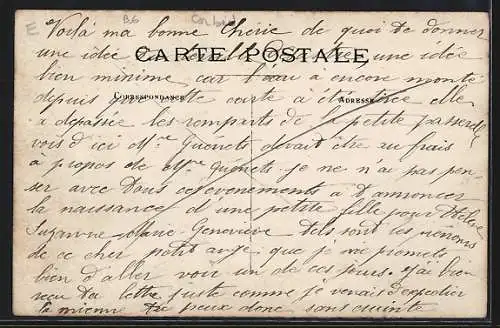 E B6 Corbeil
Voilà ma bonne Chérie de quoi te donner
une idée une idée
CARTE POSTALE
bien minime car l'eau a encore monté
CORRESPONDANCE ADRESSE
depuis que cette carte a été elle
a dépassée les remparts de la petite passerelle
vois d'ici Mr Quénets devait être au frais
à propos de Mr Quénets je ne n'ai pas pen-
ser avec tous ces evenements a t'annoncer
la naissance d'une petite fille pour
Suzanne Marie Geneviève tels sont les prénoms
de ce cher petit ange que je me promets
bien d'aller voir un de ces jours. j'ai bien
reçu ta lettre juste comme je venais d'expédier
la mienne tu peux donc sans